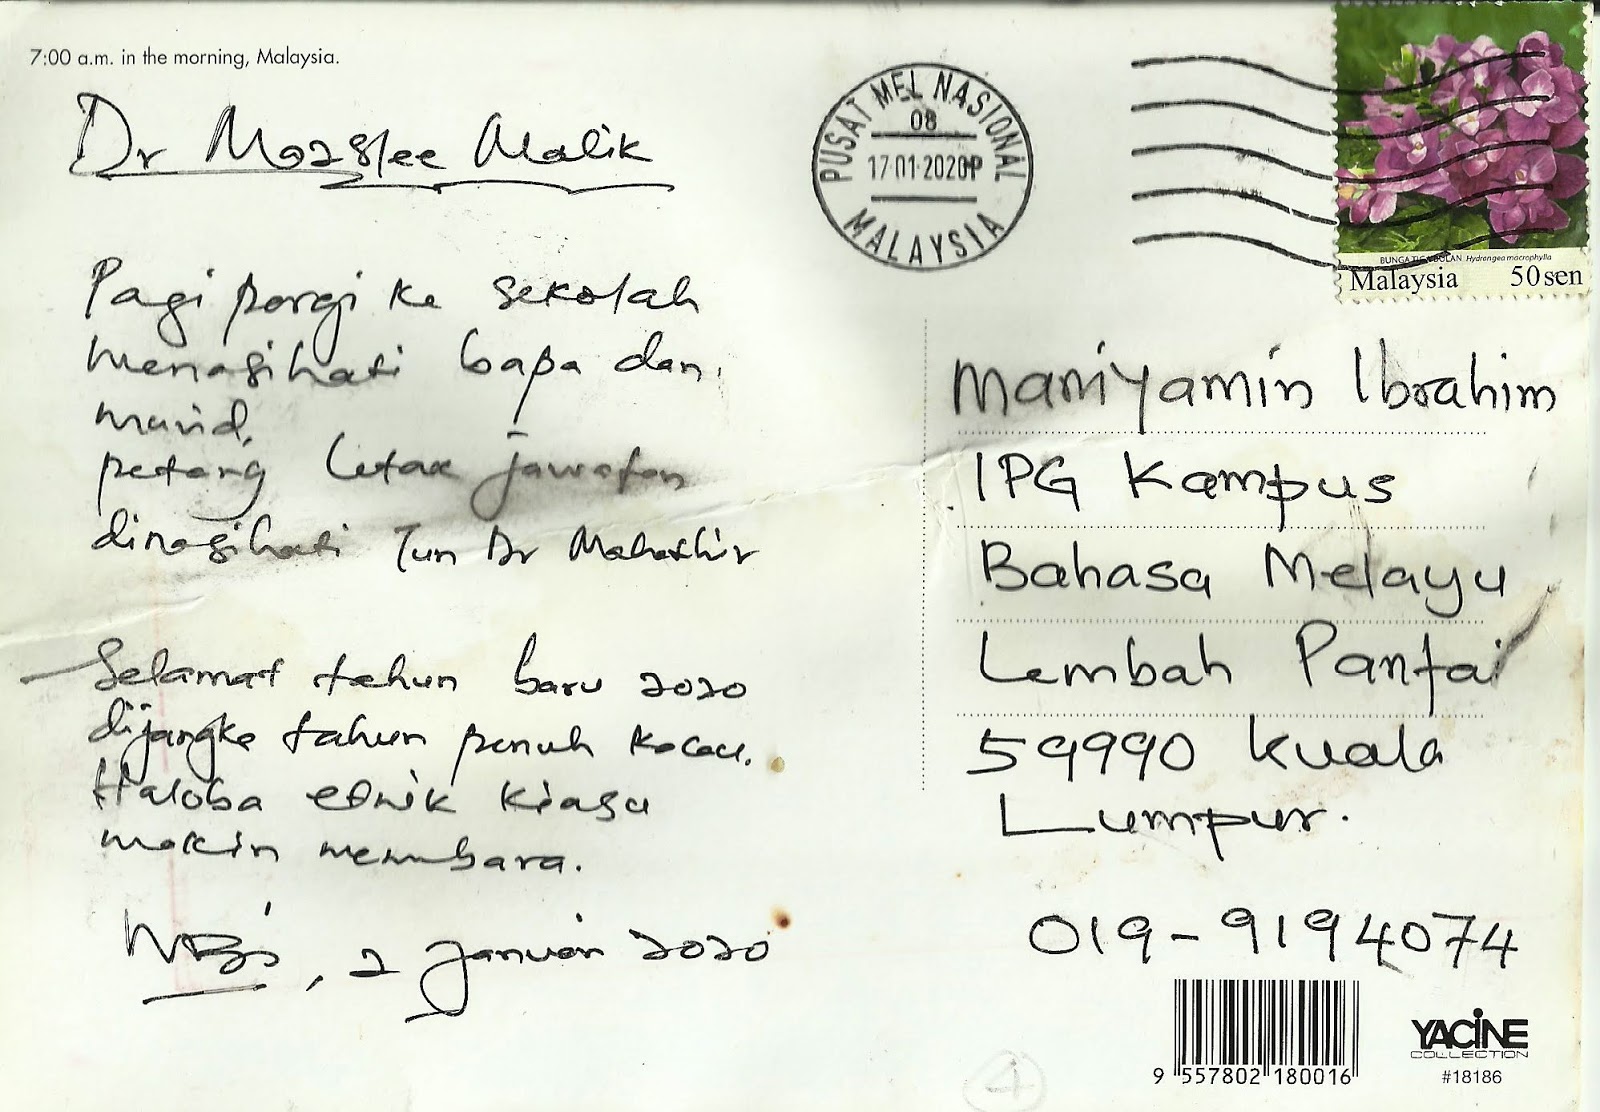 7:00 a.m. in the morning, Malaysia.
Dr Maszlee Malik
Pagi pergi ke sekolah
menasihati bapa dan
murid,
petang letak jawatan
dinasihati Tun Dr Mahathir
Selamat tahun baru 2020
dijangka tahun penuh kacau.
Haloba etnik kiasu
makin membara.
, 2 Januari 2020
PUSAT MEL NASIONAL
08
17-01-2020P
MALAYSIA
BUNGA TIGA BULAN Hydrangea macrophylla
Malaysia 50 sen
Maniyamin Ibrahim
IPG Kampus
Bahasa Melayu
Lembah Pantai
59990 Kuala
Lumpur.
019-9194074
9 557802 180016
YACINE
COLLECTION
#18186
4